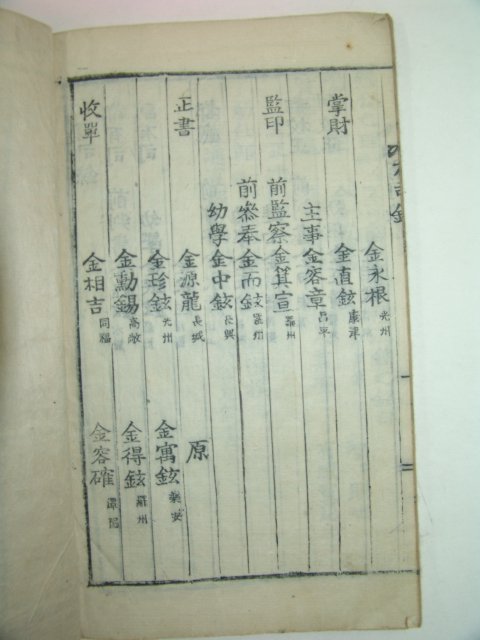 金永根 光州
掌財 金直鉉 康津
主事金容章 昌平
監印 前監察金箕宣 羅州
前叅奉金而 羅州
幼學金中鉉 長興
正書 金源龍 長城 原
金珍鉉 光州 金寓鉉 樂安
金勳錫 高敞 金得鉉 羅州
收單 金相吉 同福 金容確 潭陽